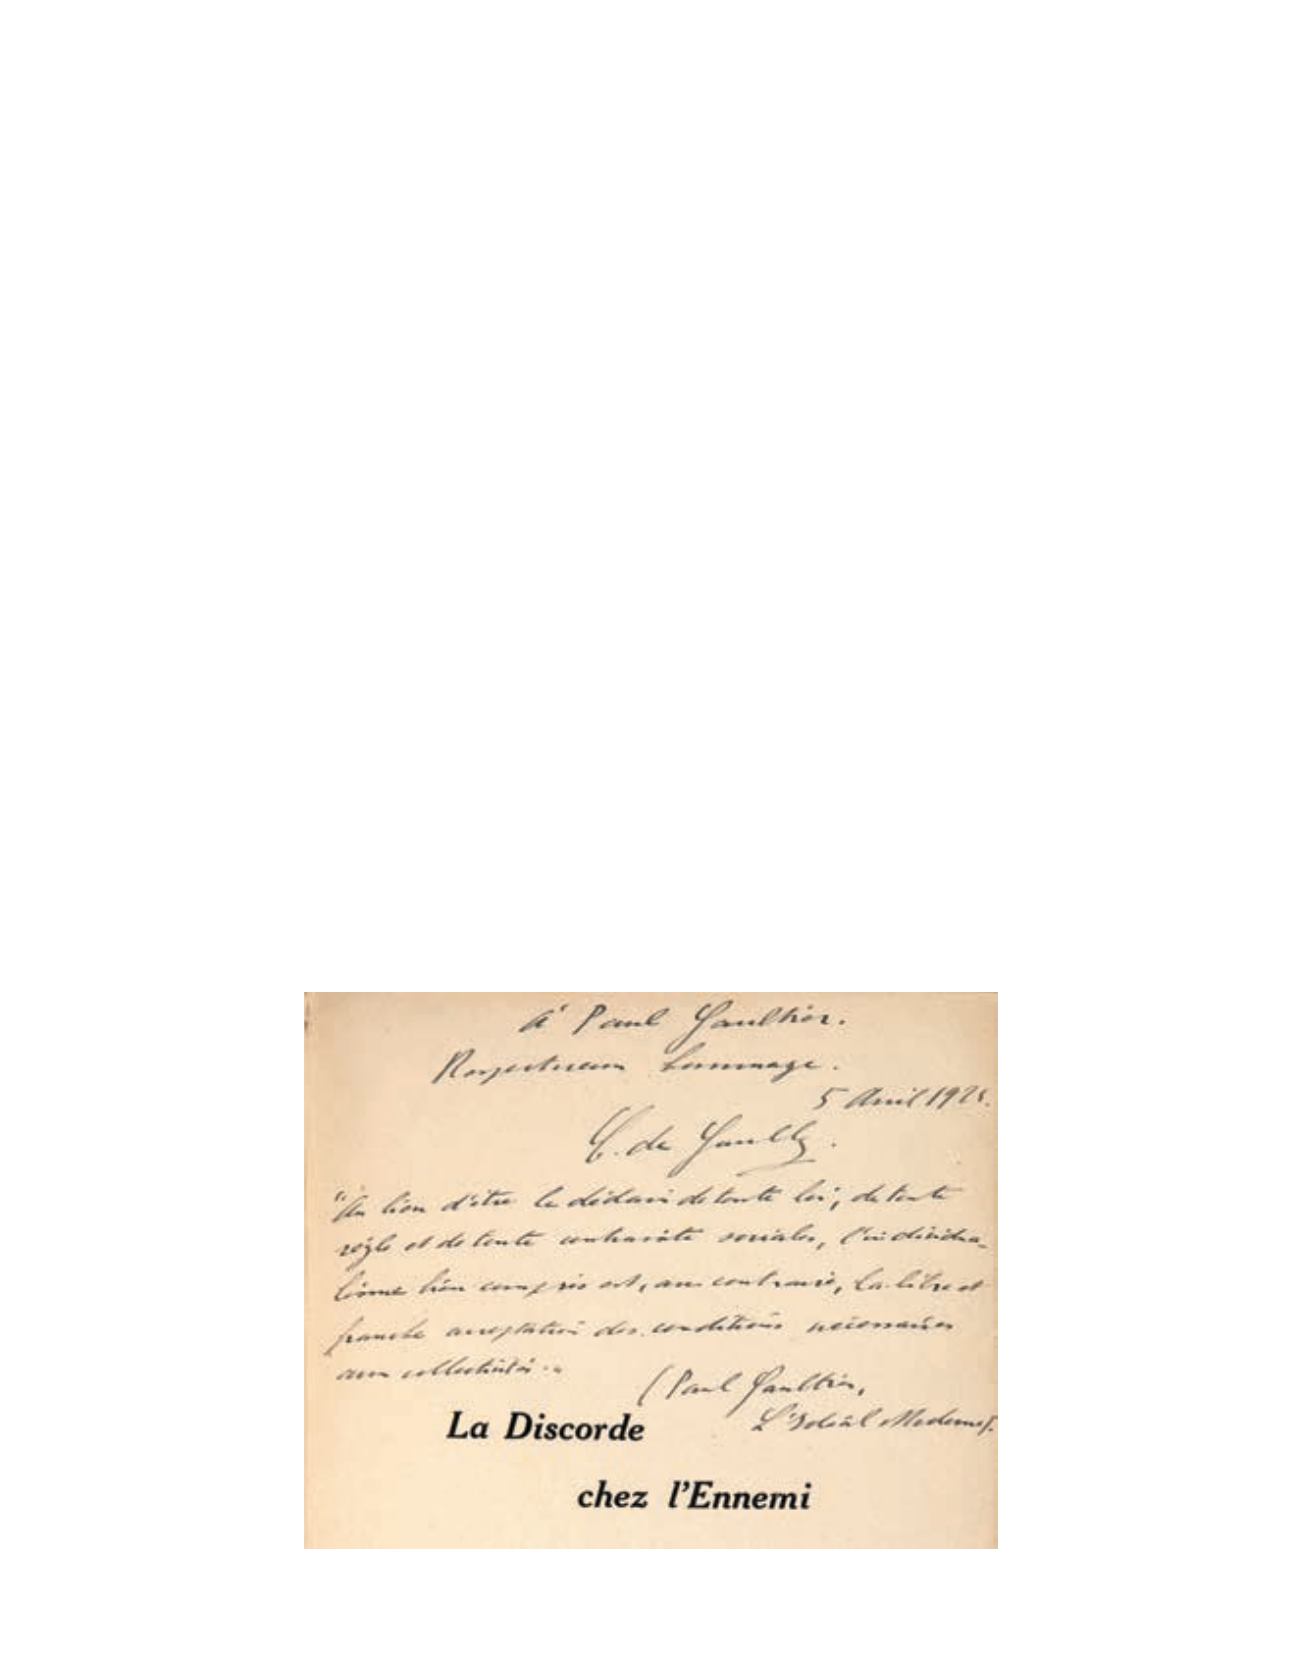 à Paul Gaultier.
Respectueux hommage.
5 Avril 192
C. de Gaulle.
"Au lieu d'être le dédain de toute loi, de toute
règle et de toute contrainte sociales, l'individua-
lisme bien compris est, au contraire, la libre et
franche acceptation des conditions nécessaires
aux collectivités..."
(Paul Gaultier,
L'Idéal Moderne).
La Discorde
chez l'Ennemi